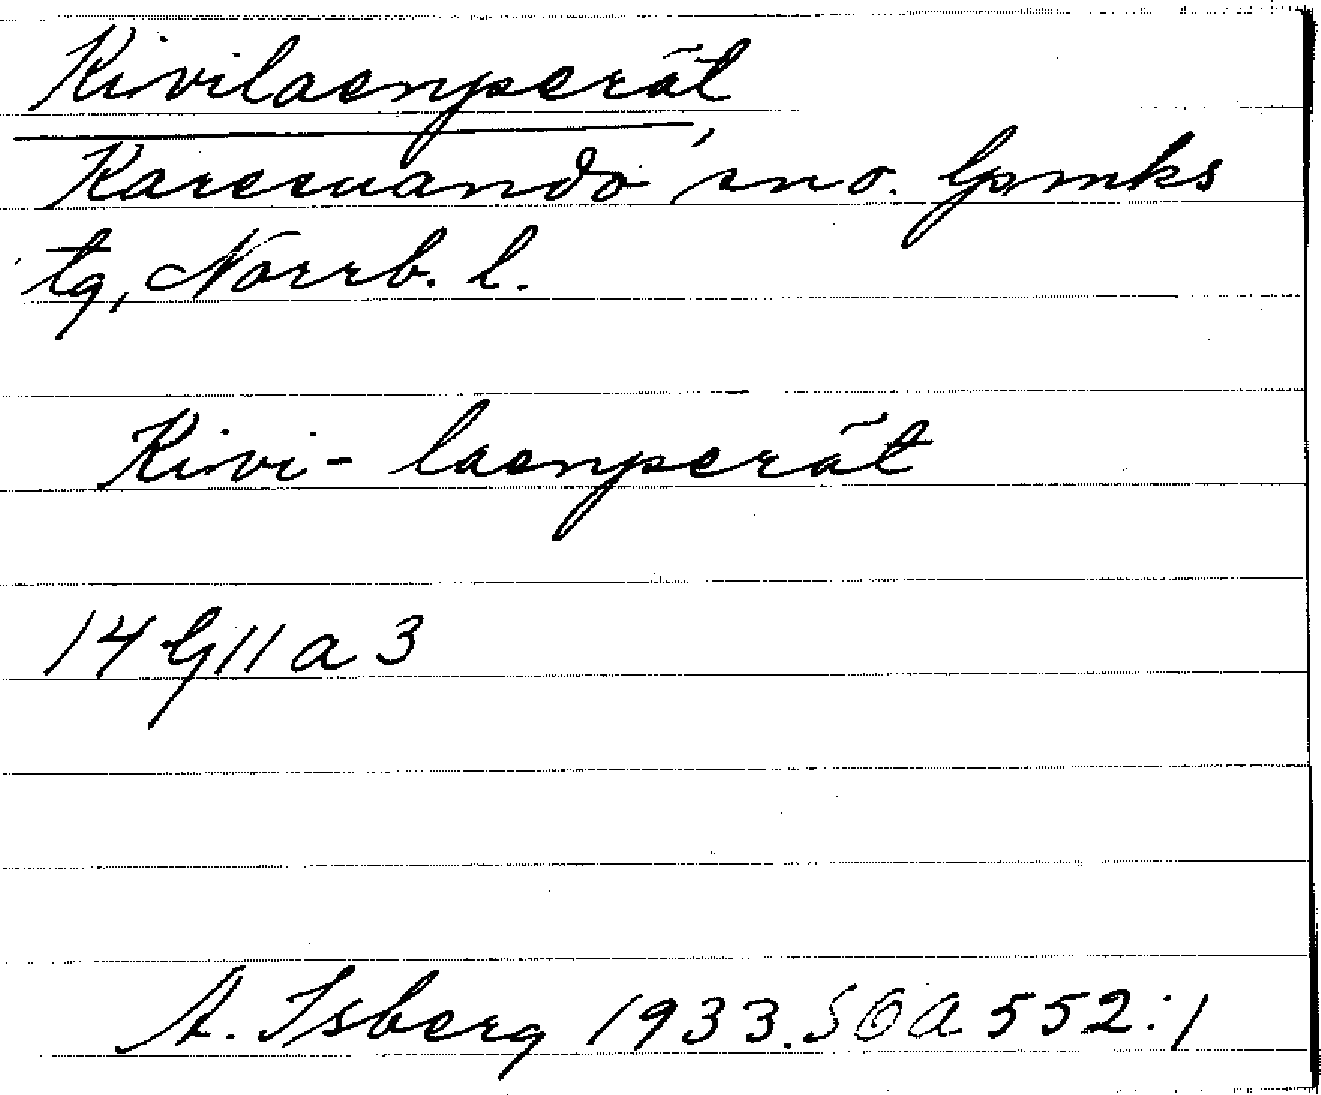 Kivilaenperät
Karesuando sno. Gpmks
tg, Norrb. l.
Kivi- laenperät
14 G 11 a 3
A. Isberg 1933. SOA 552:1